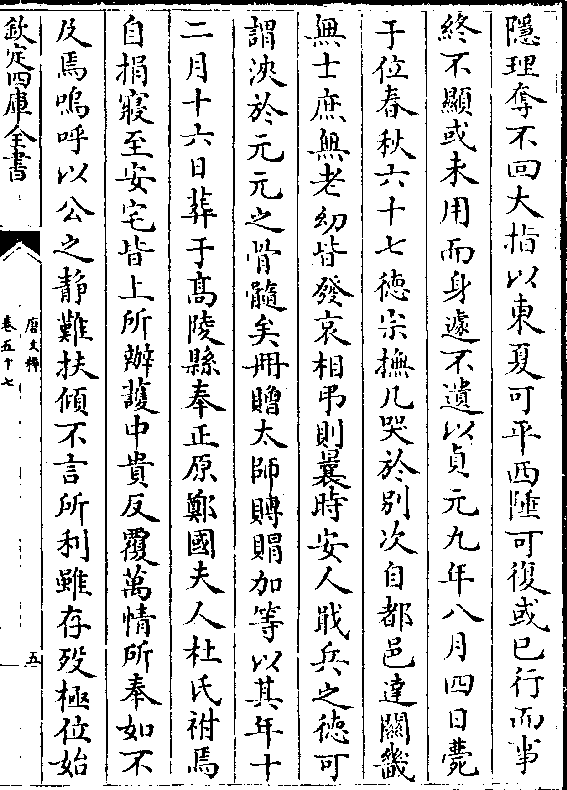 隱理奪不回大指以東夏可平西陲可復或已行而事
終不顯或未用而身遽不遺以貞元九年八月四日薨
于位春秋六十七德宗撫几哭於别次自都邑達關畿
無士庶無老幼皆發哀相弔則曩時安人戢兵之德可
謂浹於元元之骨髓矣冊贈太師賻賵加等以其年十
二月十六日葬于髙陵縣奉正原鄭國夫人杜氏祔焉
自捐寢至安宅皆上所辦護中貴反覆萬情所奉如不
及焉嗚呼以公之靜難扶傾不言所利雖存殁極位始
欽定四庫全書
唐文粹
卷五十七
五